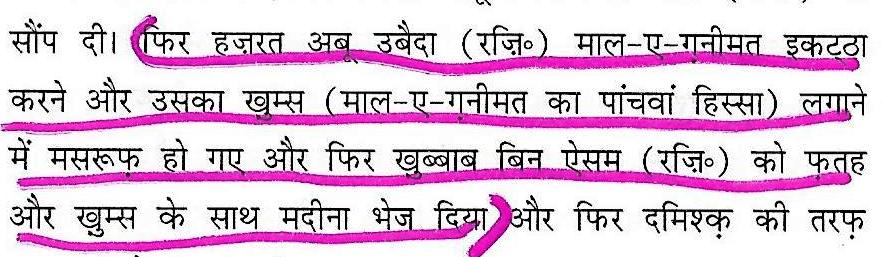 सौंप दी। फिर हज़रत अबू उबैदा (रज़ि॰) माल-ए-ग़नीमत इकट्ठा
करने और उसका खुम्स (माल-ए-ग़नीमत का पांचवां हिस्सा) लगाने
में मसरूफ़ हो गए और फिर खुब्बाब बिन ऐसम (रज़ि॰) को फ़तह
और खुम्स के साथ मदीना भेज दिया और फिर दमिश्क़ की तरफ़